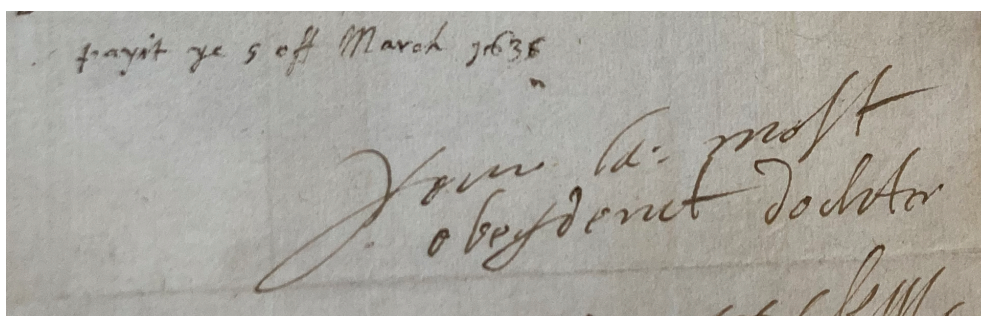 payit ye 5 off March 1636
Your la: most
obeydenct dochter